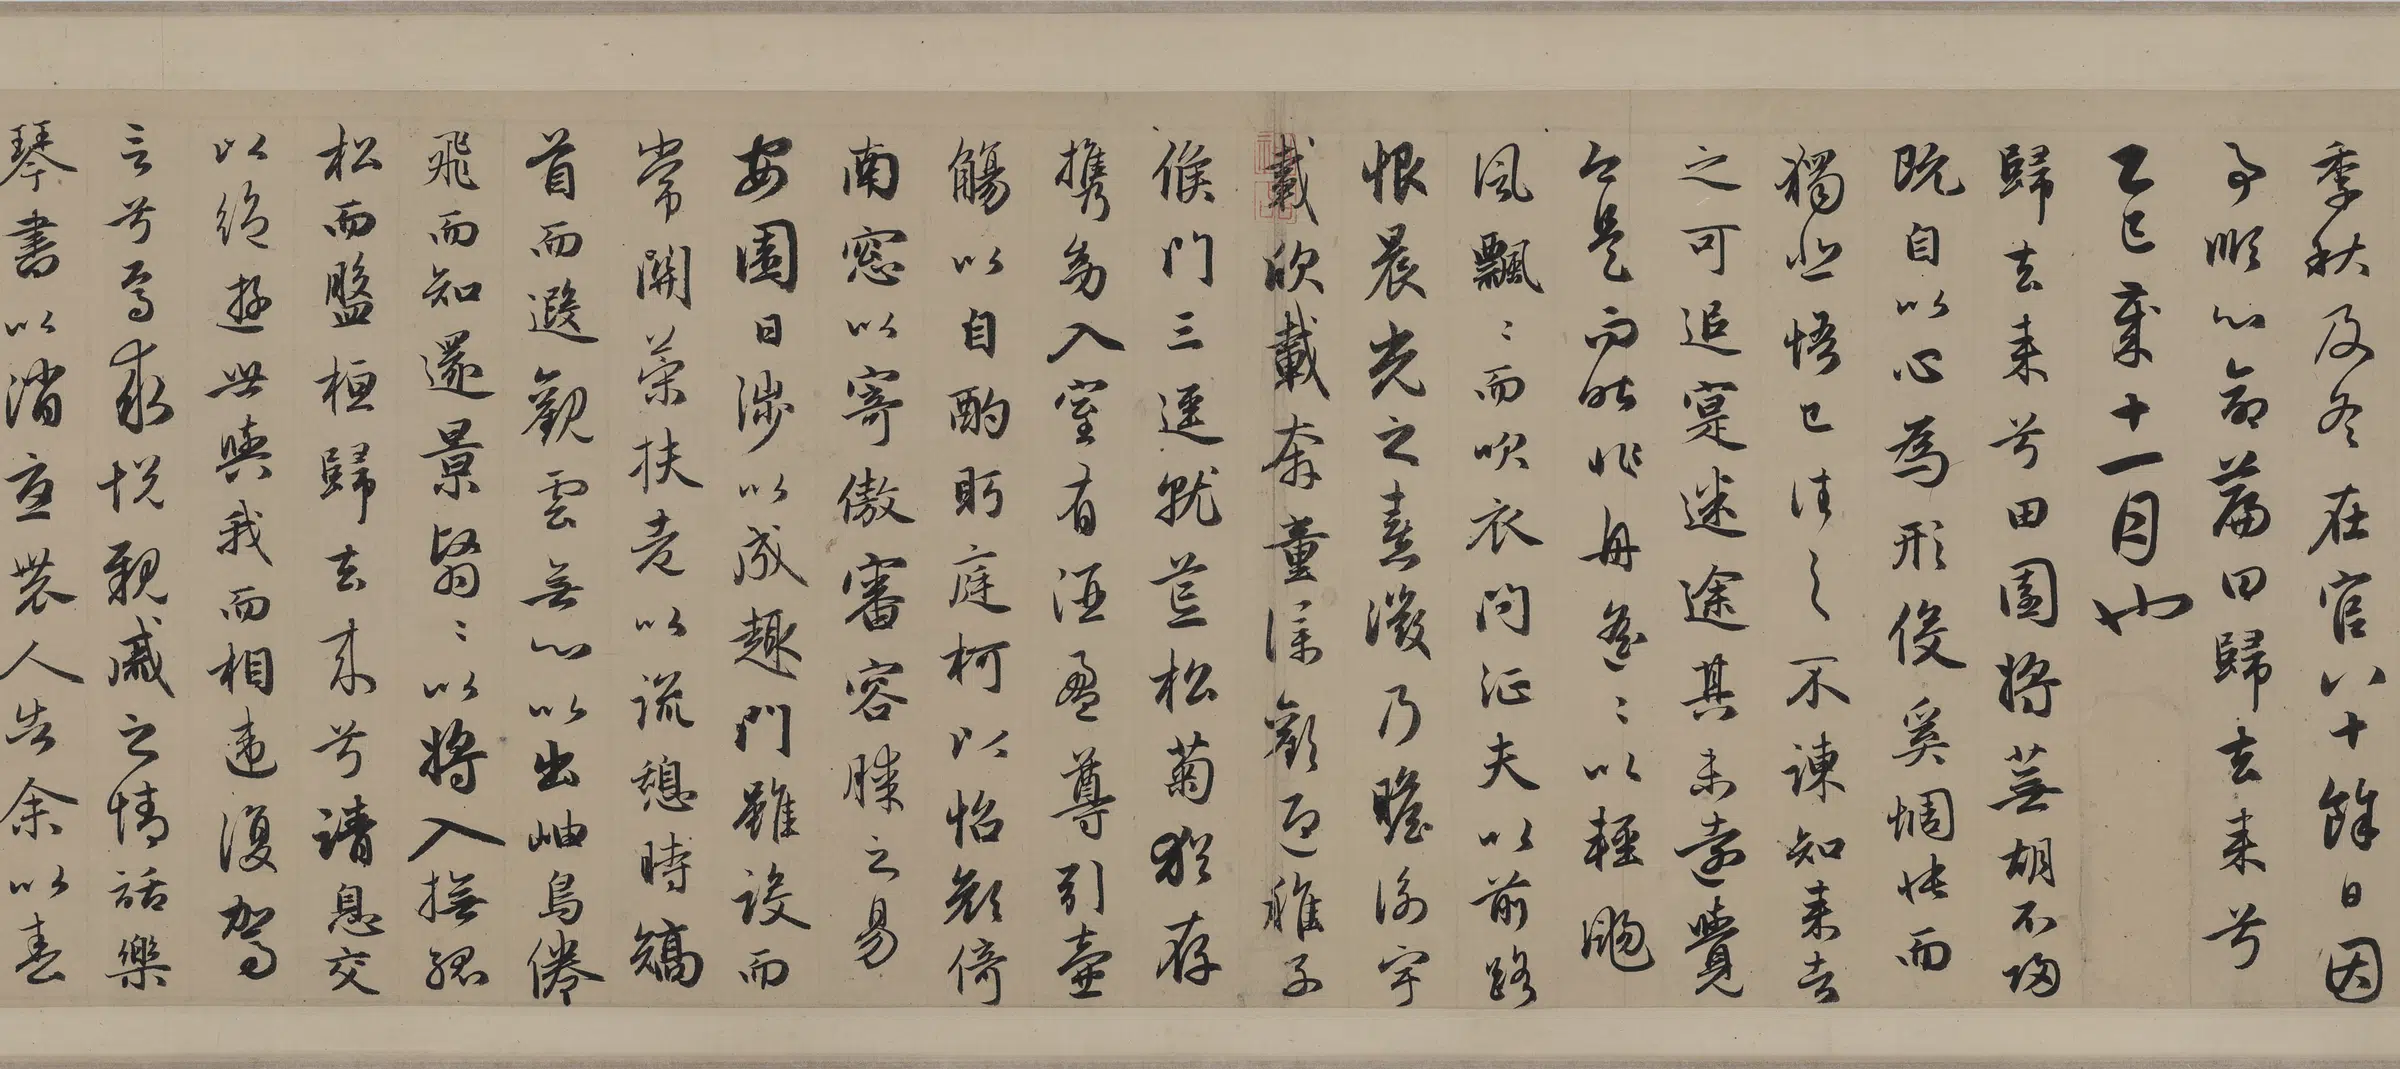 季秋及冬在官八十餘日因
事順心命篇曰歸去来兮
乙巳歲十一月也
歸去来兮田園將蕪胡不歸
既自以心為形役奚惆悵而
獨悲悟已往之不諫知来者
之可追寔迷途其未遠覺
今是而昨非舟遙〻以輕颺
風飄〻而吹衣問征夫以前路
恨晨光之熹微乃瞻衡宇
載欣載奔童僕歡迎稚子
候門三逕就荒松菊猶存
攜幼入室有酒盈尊引壺
觴以自酌眄庭柯以怡顏倚
南窓以寄傲審容膝之易
安園日涉以成趣門雖設而
常關策扶老以流憩時矯
首而遐觀雲無心以出岫鳥倦
飛而知還景翳〻以將入撫孤
松而盤桓歸去来兮請息交
以絕遊世與我而相違復駕
言兮焉求悅親戚之情話樂
琴書以消憂農人告余以春